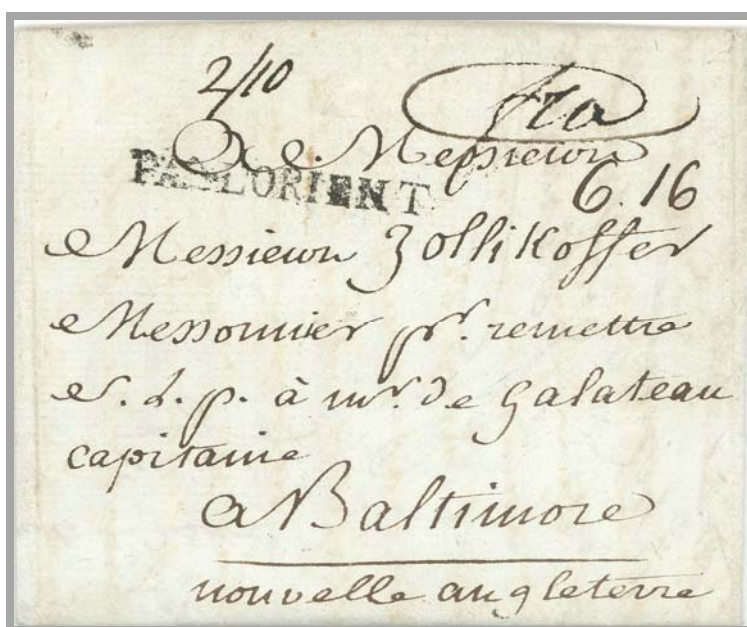 2/10
fra
A Messieurs
PAR LORIENT
6.16
Messieurs Zollikoffer
Messonnier pr. remettre
S. L. p. à mr. de Galateau
capitaine
a Baltimore
nouvelle angleterre